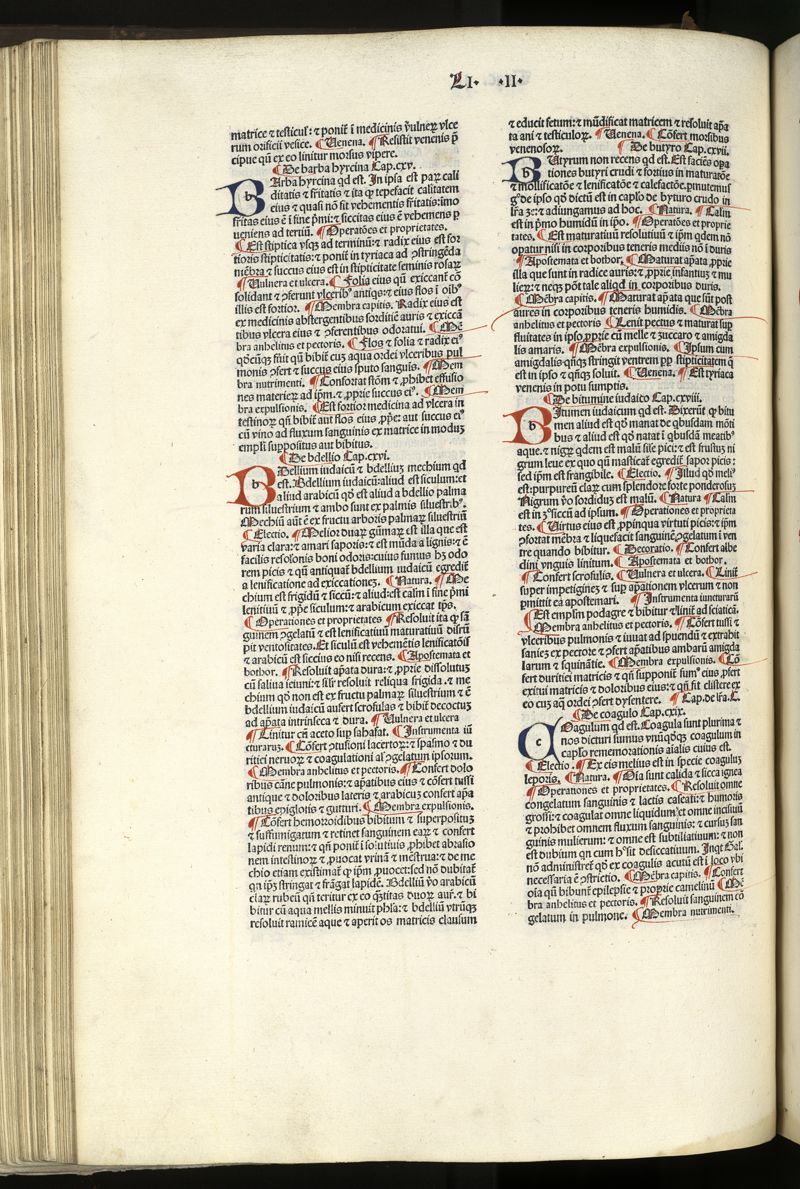 LI· ·II·
matrice ⁊ testicul᷒: ⁊ ponit᷑ ī medicinis v̄lneꝝ vlce
rum orificii vesice. ¶ Uenena. ¶ Resistit venenis p̄
cipue qn̄ ex eo linitur morsus vipere.
¶ De barba hyrcina Cap.cxv.
BArba hyrcina qd est. In ipsa est paꝝ cali
ditatis ⁊ fr̄itatis ⁊ ita ꝙ tepefacit caliditatem
eius ⁊ quasi nō sit vehementis fr̄itatis: īmo
fr̄itas eius ē ī fine p̄mi: ⁊ siccitas eius ē vehemens ꝑ
ueniens ad teriū. ¶ Operatōes et proprietates.
¶ Est stiptica vsqꝫ ad terminū: ⁊ radix eius est for
tioris stipticitatis: ⁊ ponit᷑ in tyriaca ad ꝯstringēda
mēbra ⁊ succus eius est in stipticitate seminis rosaꝝ
¶ Uulnera et ulcera. ¶ Folia eius qn̄ exiccant᷑ cō
solidant ⁊ ꝯferunt ylcerib᷒ antiq̄s: ⁊ eius flos ī oīb᷒
illis est fortior. ¶ Membra capitis. Radix eius est
ex medicinis abstergentibus sorditiē auris ⁊ exiccā
tibus vlcera eius ⁊ ꝯferentibus odoratui. ¶ Mē
bra anhelitus et pectoris. ¶ Flos ⁊ folia ⁊ radix ei᷒
qd̄cūqꝫ fuit qn̄ bibit᷑ cuꝫ aqua ordei ylceribus pul
monis ꝯfert ⁊ succus eius sputo sanguis. ¶ Mem
bra nutrimenti. ¶ Confortat stōm ⁊ ꝓhibet effusio
nes materieꝝ ad ip̄m. ⁊ ꝓprie succus ei᷒. ¶ Mem
bra expulsionis. ¶ Est fortior medicina ad vlcera in
testinoꝝ qn̄ bibit᷑ aut flos eius ꝓp̄e: aut succus ei᷒
cū vino ad fluxum sanguinis ex matrice in moduꝫ
emplī suppositus aut bibitus.
¶ De bdellio Cap.cxvi.
BDellium iudaicū ⁊ bdelliuꝫ mechium qd
est. Bdellium iudaicū: aliud est siculum: et
aliud arabicū qd̄ est aliud a bdellio palma
rum siluestrium ⁊ ambo sunt ex palmis siluestrib᷒.
Mechiū aūt ē ex fructu arboris palmaꝝ siluestriū
¶ Electio. ¶ Melior duaꝝ gūmaꝝ est illa que est
varia clara: ⁊ amari saporis: ⁊ est mūda a lignis: ⁊ ē
facilis resolōnis boni odoris: cuius fumus hꝫ odo
rem picis ⁊ qn̄ antiquat᷑ bdellium iudaicū egredit᷑
a lenificatione ad exiccationeꝫ. ¶ Natura. ¶ Me
chium est frigidū ⁊ siccū: ⁊ aliud: est calm̄ ī fine p̄mi
lenitiuū ⁊ ꝓp̄e siculum: ⁊ arabicum exiccat tp̄s.
¶ Operationes et proprietates ¶ Resoluit ita ꝙ sā
guinem ꝯgelatū ⁊ est lenificatiuū maturatiuū disrū
pit ventositates. Et siculū est vehemētis lenificatōis
⁊ arabicū est siccius eo nisi recens. ¶ Apostemata et
bothor. ¶ Resoluit ap̄ata dura: ⁊ ꝓprie dissolutuꝫ
cū saliua ieiuni: ⁊ silr̄ resoluit reliqua frigida. ⁊ me
chium qd̄ non est ex fructu palmaꝝ siluestrium ⁊ ē
bdellium iudaicū aufert scrofulas ⁊ bibit᷑ decoctuꝫ
ad ap̄ata intrinseca ⁊ dura. ¶ Uulnera et ulcera
¶ Linitur cū aceto sup̄ sahafat. ¶ Instrumenta iū
cturaruꝫ. ¶ Cōfert ꝯtusioni lacertoꝝ: ⁊ spasmo ⁊ du
ritiei neruoꝝ ⁊ coagulationi al᷒ ꝯgelatum ipsorum.
¶ Membra anhelitus et pectoris. ¶ Confert dolo
ribus cāne pulmonis: ⁊ ap̄atibus eius ⁊ cōfert tussi
antique ⁊ doloribus lateris ⁊ arabicuꝫ confert ap̄a
tibus epiglotis ⁊ gutturi. ¶ Membra expulsionis.
¶ Cōfert hemoroidibus bibitum ⁊ superpositum
⁊ suffumigatum ⁊ retinet sanguinem eaꝝ ⁊ confert
lapidi renum: ⁊ qn̄ ponit᷑ ī solutiuis ꝓhibet abrasio
nem intestinoꝝ ⁊ ꝓuocat yrinā ⁊ mēstrua: ⁊ de me
chio etiam existimat᷑ ꝙ ip̄m ꝓuocet: sed nō dubitat᷑
qn ip̄ꝫ stringat ⁊ frāgat lapidē. Bdelliū v̄o arabicū
claꝝ rubeū qn̄ teritur ex eo q̄ntitas duoꝝ aur̄. ⁊ bi
bitur cū aqua mellis minuit phīa: ⁊ bdelliū vtrūqꝫ
resoluit ramicē aque ⁊ aperit os matricis clausum
⁊ educit fetum: ⁊ mūdificat matricem ⁊ resoluit ap̄a
ta ani ⁊ testiculoꝝ. ¶ Uenena. ¶ Cōfert morsibus
venenosoꝝ. ¶ De butyro Cap.cxvii.
BUtyrum non recens qd est. Est faciēs oꝑa
tiones butyri crudi ⁊ fortius in maturatōe
⁊ mollificatōe ⁊ lenificatōe ⁊ calefactōe. ꝑmutemus
g᷑ de ipso qd̄ dictū est in caplo de byturo crudo in
lr̄a ꝫc: ⁊ adiungamus ad hoc. ¶ Natura. ¶ Calm̄
est in p̄mo humidū in ip̄o. ¶ Operatōes et proprie
tates. ¶ Est maturatiuū resolutiuū ⁊ ip̄m qdem nō
opatur nisi in corporibus teneris mediis nō ī duris
¶ Apostemata et bothor. ¶ Maturat ap̄ata ꝓprie
illa que sunt in radice auris: ⁊ ꝓprie infantiuꝫ ⁊ mu
lieꝝ: ⁊ neqꝫ pōt tale aliqd in corporibus duris.
¶ Mēbra capitis. ¶ Maturat ap̄ata que sūt post
aures in corporibus teneris humidis. ¶ Mēbra
anhelitus et pectoris ¶ Lenit pectus ⁊ maturat sup̄
fluitates in ipso ꝓprie cū melle ⁊ zuccaro ⁊ amigda
lis amaris. ¶ Mēbra expulsionis. ¶ Ipsum cum
amigdalis qn̄qꝫ stringit ventrem ꝓp̄ stipticitatem q̄
est in ipso ⁊ qn̄qꝫ soluit. ¶ Uenena. ¶ Est tyriaca
venenis in potu sumptis.
¶ De bitumine iudaico Cap.cxviii.
BItumen iudaicum qd est. Dixerūt ꝙ bitu
men aliud est qd̄ manat de quibusdam mōti
bus ⁊ aliud est qd̄ natat ī qbusdā meatib᷒
aque. ⁊ nigꝝ qdem est malū sīle pici: ⁊ est frustuꝫ ni
grum leue ex quo qn̄ masticat᷑ egredit᷑ sapor picis:
sed ip̄m est frangibile. ¶ Electio. ¶ Illud qd̄ meli᷒
est: purpureū claꝝ cum splendore forte ponderosuꝫ
Nigrum v̄o sordidū est malū. ¶ Natura ¶ Calm̄
est in ꝫ᷒ siccū ad ipsum. ¶ Operationes et proprieta
tes. ¶ Uirtus eius est ꝓpinqua virtuti picis: ⁊ ip̄m
ꝯfortat mēbra ⁊ liquefacit sanguinē ꝯgelatum ī ven
tre quando bibitur. ¶ Decoratio. ¶ Confert albe
dini ynguis linitum. ¶ Apostemata et bothor.
¶ Confert scrofulis. ¶ Uulnera et ulcera. ¶ Linit᷑
super impetigines ⁊ sup̄ ap̄ationem vlcerum ⁊ non
ꝑmittit ea apostemari. ¶ Instrumenta iuncturarū
¶ Est emplm̄ podagre ⁊ bibitur ⁊ linit᷑ ad sciaticā.
¶ Membra anhelitus et pectoris. ¶ Cōfert tussi ⁊
ylceribus pulmonis ⁊ iuuat ad spuendū ⁊ extrahit
saniez ex pectore ⁊ ꝯfert ap̄atibus ambarū amigda
larum ⁊ squināte. ¶ Membra expulsionis. ¶ Cō
fert duritiei matricis ⁊ qn̄ supponit᷑ fum᷒ eius ꝓfert
exitui matricis ⁊ doloribus eius: ⁊ qn̄ fit clistere ex
eo cuꝫ aq̄ ordei ꝯfert dysentere. ¶ Cap. de lr̄a. C.
¶ De coagulo Cap.cxix.
COagulum qd est. Coagula sunt plurima ⁊
nos dicturi sumus vnūqdqꝫ coagulum in
caplo rememorationis aīalis cuius est.
¶ Electio. ¶ Ex eis melius est in specie coaguluꝫ
leporis. ¶ Natura. ¶ Oīa sunt calida ⁊ sicca ignea
¶ Operationes et proprietates. ¶ Resoluit omne
congelatum sanguinis ⁊ lactis caseati: ⁊ humoris
grossi: ⁊ coagulat omne liquidum: et omne incisiuū
⁊ prohibet omnem fluxum sanguinis: ⁊ cursuꝫ san
guinis mulierum: ⁊ omne est subtiliatiuum: ⁊ non
est dubium qn cum h᷒ sit desiccatiuum. Inqt Gal.
non administret᷑ qd̄ ex coagulis acutū est ī loco vbi
necessaria ē ꝯstrictio. ¶ Mēbra capitis. ¶ Confert
oīa qn̄ bibunt᷑ epilepsie ⁊ proprie camelinū ¶ Mē
bra anhelitus et pectoris. ¶ Resoluit sanguinem cō
gelatum in pulmone. ¶ Membra nutrimenti.